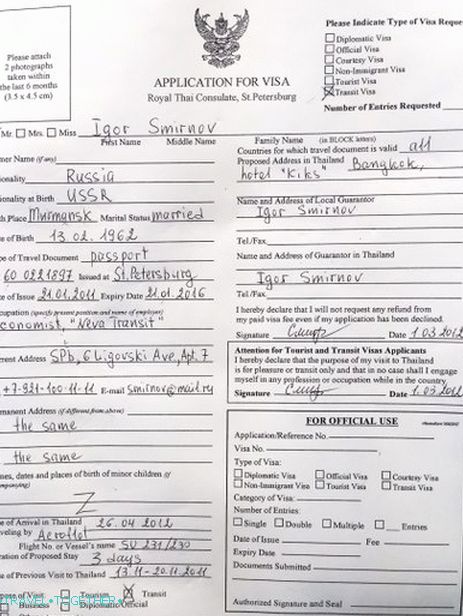 Please attach
2 photographs
taken within
the last 6 months
(3.5 x 4.5 cm)
APPLICATION FOR VISA
Royal Thai Consulate, St.Petersburg
Please Indicate Type of Visa Reque
Diplomatic Visa
Official Visa
Courtesy Visa
Non-Immigrant Visa
Tourist Visa
Transit Visa
Number of Entries Requested
Mr Mrs. Miss Igor Smirnov
First Name Middle Name
Family Name (in BLOCK letters)
mer Name (if any)
ionality Russia
ionality at Birth USSR
h Place Murmansk Marital Status married
e of Birth 13.02.1962
e of Travel Document passport
60 0221897 Issued at St.Petersburg
te of Issue 21.01.2011 Expiry Date 21.01.2016
cupation (specify present position and name of employer)
conomist, "Neva Transit"
rrent Address SPb, 6 Ligovski Ave, Apt. 7
+7-921-100-11-11 E-mail smirnov@mail.ru
manent Address (if different from above)
the same
the same
mes, dates and places of birth of minor children (if
ompanying)
Z
te of Arrival in Thailand 26.04 2012
veling by Aeroflot
Flight No. or Vessel's name SU 231/230
ration of Proposed Stay 3 days
te of Previous Visit to Thailand 13.11-20.11.2011
pose of Visit Tourism Transit
Business Diplomatic/Official
Countries for which travel document is valid all
Proposed Address in Thailand Bangkok,
hotel "Kiks"
Name and Address of Local Guarantor
Igor Smirnov
Tel./Fax
Name and Address of Guarantor in Thailand
Igor Smirnov
Tel./Fax
I hereby declare that I will not request any refund from
my paid visa fee even if my application has been declined.
Signature Date 1 03 2012
Attention for Tourist and Transit Visas Applicants
I hereby declare that the purpose of my visit to Thailand
is for pleasure or transit only and that in no case shall I engage
myself in any profession or occupation while in the country.
Signature Date 1.03 2012
FOR OFFICIAL USE
Application/Reference No.
Visa No.
Type of Visa:
Diplomatic Visa Official Visa Courtesy Visa
Non-Immigrant Visa Tourist Visa Transit Visa
Category of Visa:
Number of Entries:
Single Double Multiple Entries
Date of Issue Fee
Expiry Date
Documents Submitted
Authorized Signature and Seal
TRAVEL-TOGETHER